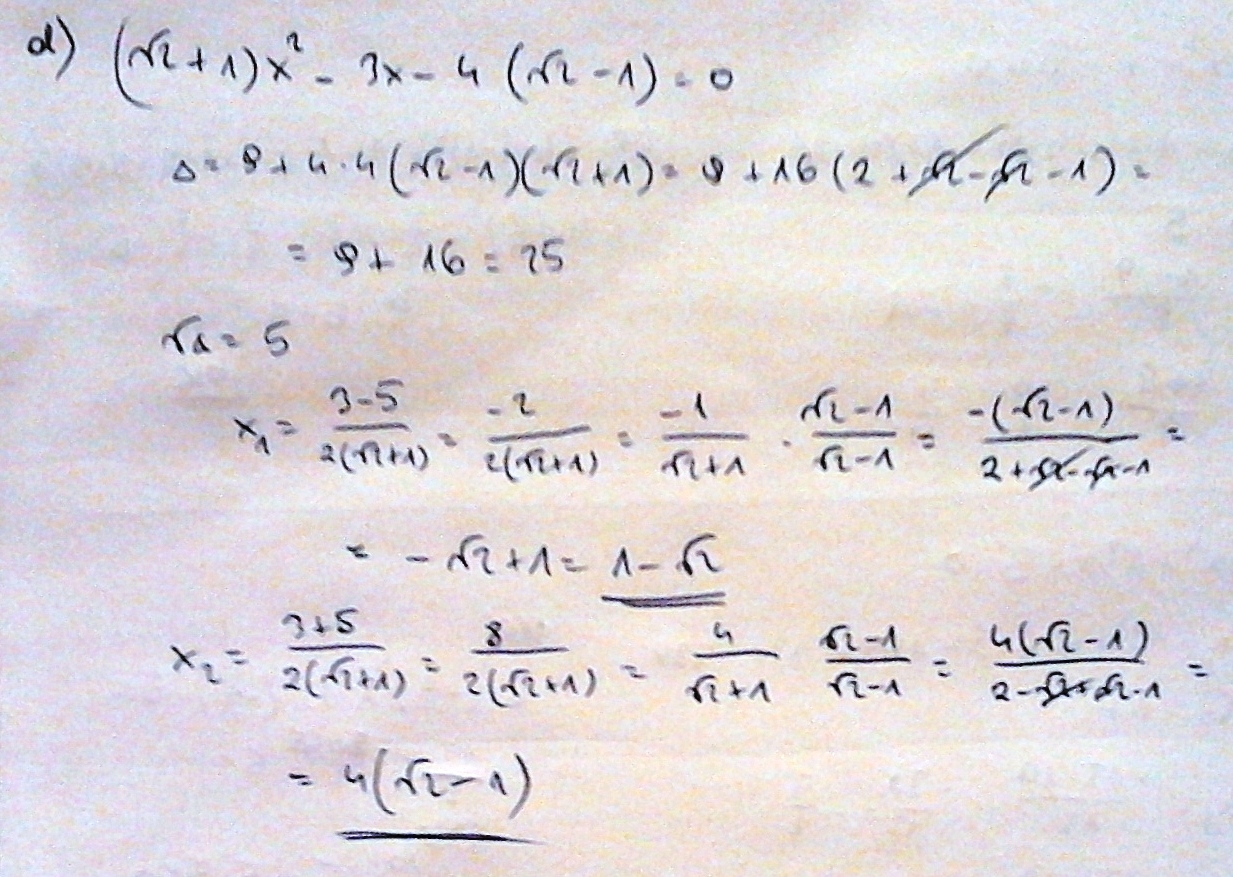 d) (√2+1)x² - 3x - 4(√2-1) = 0
Δ = 9+4·4(√2-1)(√2+1) = 9+16(2+√2-√2-1) =
= 9+16 = 25
√Δ = 5
x₁ = (3-5)/(2(√2+1)) = -2/(2(√2+1)) = -1/(√2+1) · (√2-1)/(√2-1) = -(√2-1)/(2+√2-√2-1) =
= -√2+1 = 1-√2
x₂ = (3+5)/(2(√2+1)) = 8/(2(√2+1)) = 4/(√2+1) (√2-1)/(√2-1) = 4(√2-1)/(2-√2+√2-1) =
= 4(√2-1)